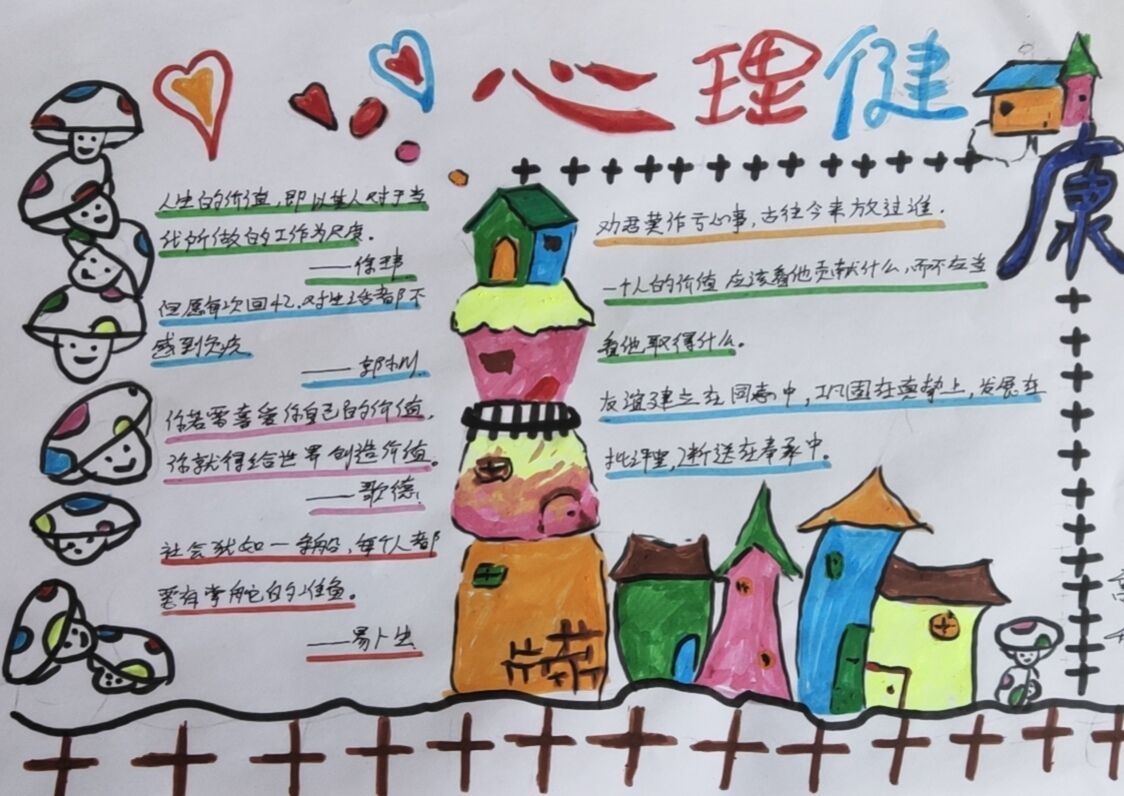 心理健康
人生的价值,即以其人对于当
代所做的工作为尺度。
——徐玮
但愿每次回忆,对生活都不
感到负疚
——郭小川
你若要喜爱你自己的价值,
你就得给世界创造价值。
——歌德
社会犹如一条船,每个人都
要有掌舵的准备。
——易卜生
劝君莫作亏心事,古往今来放过谁.
一个人的价值 应该看他贡献什么,而不在当
看他取得什么。
友谊建立在同志中,巩固在真挚上,发展在
批评里,断送在奉承中.